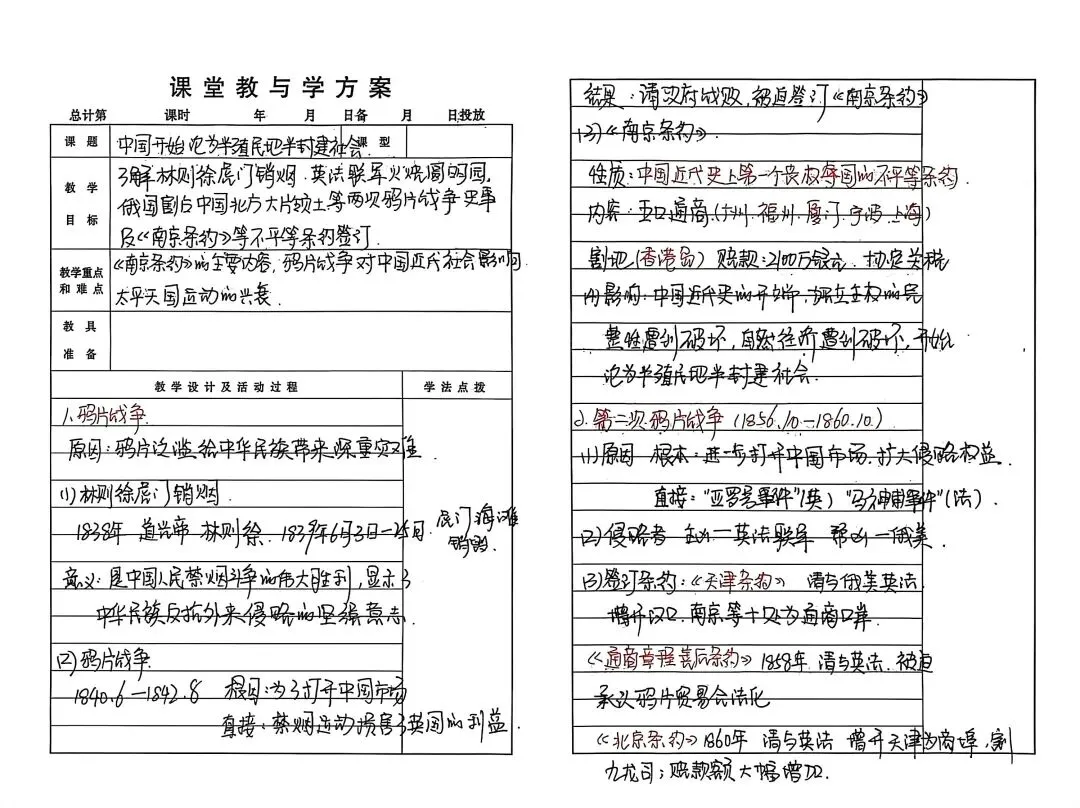 课堂教与学方案
总计第 课时 年 月 日备 月 日投放
课 题 中国开始沦为半殖民地半封建社会. 课 型
教 学 目 标 了解林则徐虎门销烟.英法联军火烧圆明园.
俄国割占中国北方大片领土等两次鸦片战争史事
及《南京条约》等不平等条约签订.
教学重点 和 难 点 《南京条约》的主要内容,鸦片战争对中国近代社会影响
太平天国运动的兴衰.
教 具 准 备
教 学 设 计 及 活 动 过 程 学 法 点 拨
1.鸦片战争.
原因:鸦片泛滥给中华民族带来深重灾难
(1)林则徐虎门销烟.
1838年 道光帝 林则徐. 1839年6月3日—25日. 虎门海滩
销毁.
意义:是中国人民禁烟斗争的伟大胜利,显示了
中华民族反抗外来侵略的坚强意志.
(2)鸦片战争.
1840.6—1842.8 根因:为了打开中国市场
直接:禁烟运动损害了英国的利益.
结果:清政府战败,被迫签订《南京条约》
(3)《南京条约》.
性质:中国近代史上第一个丧权辱国的不平等条约.
内容:五口通商(广州.福州.厦门.宁波.上海)
割地(香港岛) 赔款:2100万银元. 协定关税
(4)影响:中国近代史的开端,独立主权的完
整性遭到破坏,自然经济遭到破坏,开始
沦为半殖民地半封建社会.
2.第二次鸦片战争(1856.10—1860.10.)
(1)原因 根本:进一步打开中国市场.扩大侵略权益.
直接:"亚罗号事件"(英)"马神甫事件"(法).
(2)侵略者 主凶—英法联军 帮凶—俄美.
(3)签订条约:《天津条约》 清与俄美英法.
增开汉口.南京等十处为通商口岸.
《通商章程善后条约》1858年.清与英法.被迫
承认鸦片贸易合法化
《北京条约》1860年 清与英法 增开天津为商埠,割
九龙司;赔款额大幅增加.